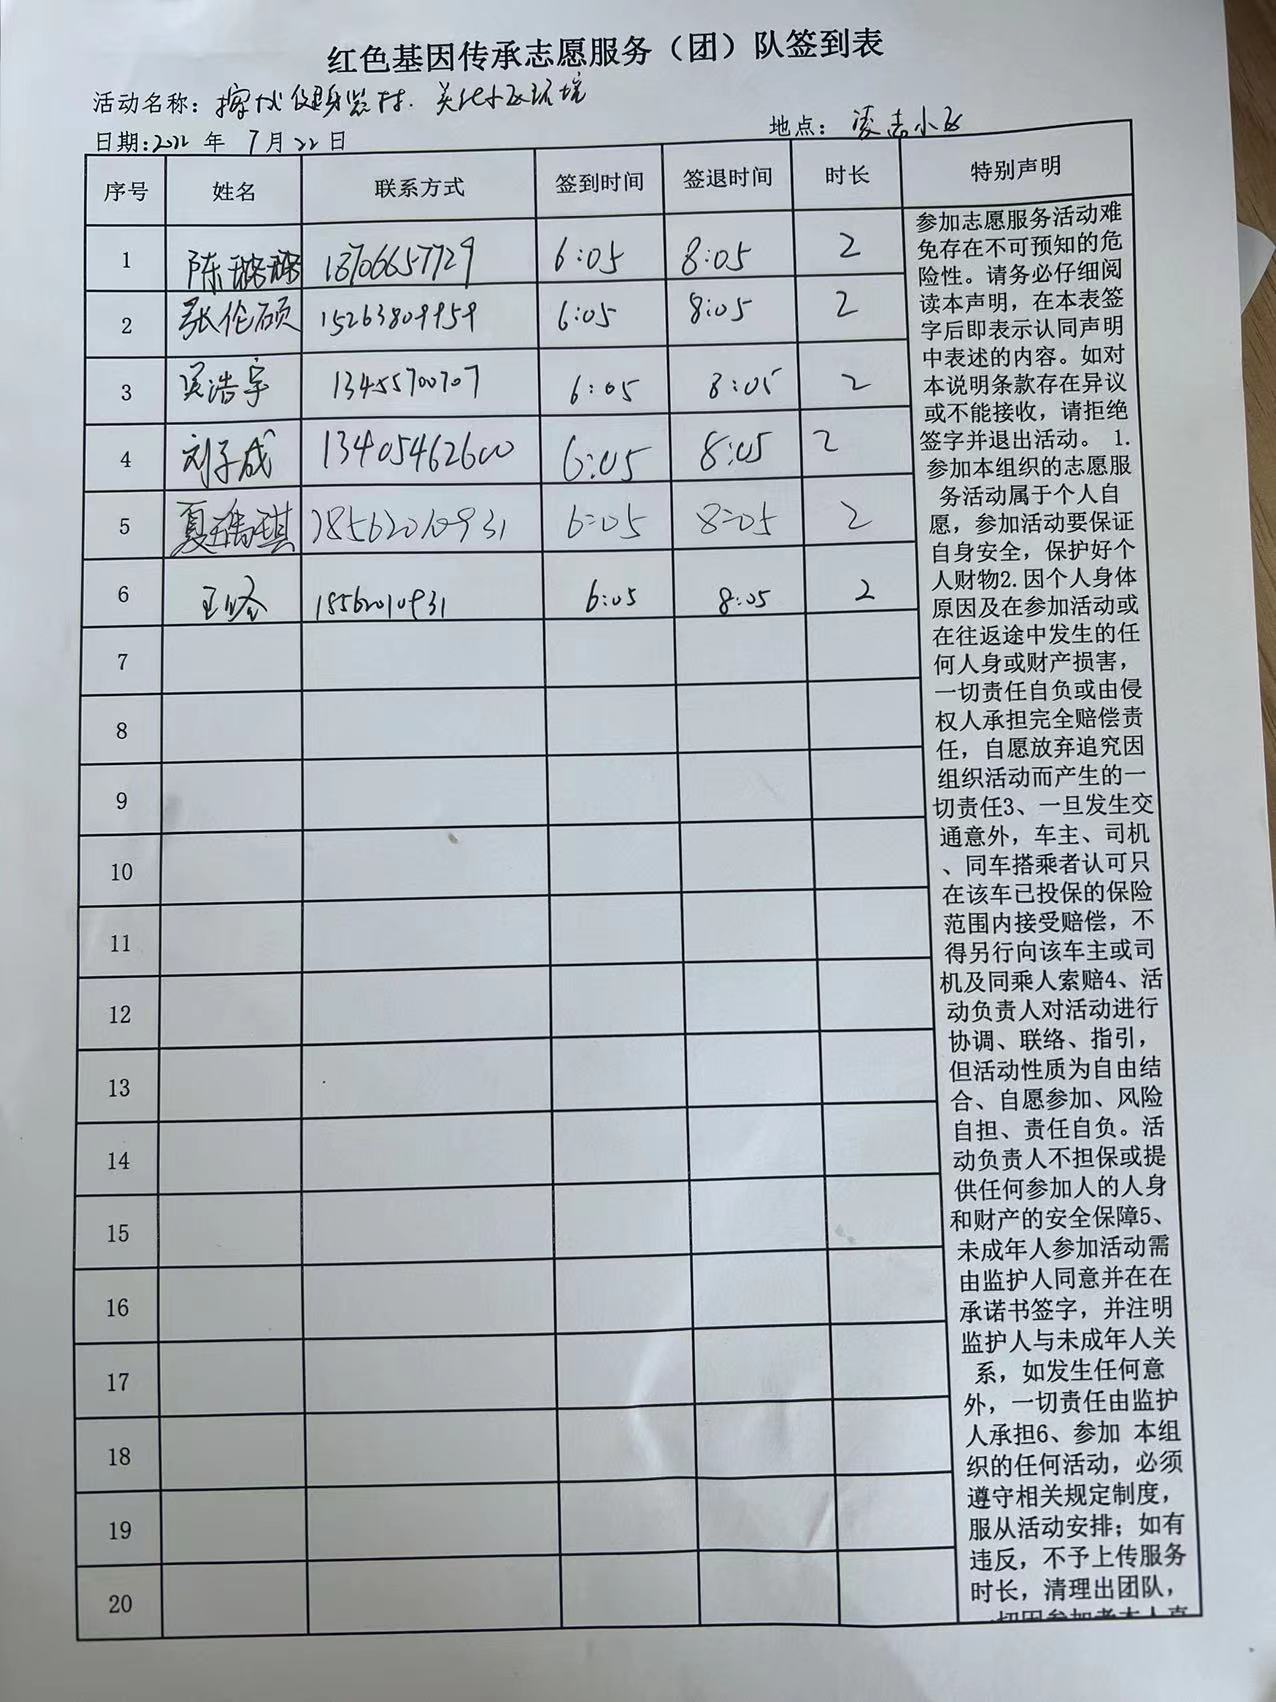 红色基因传承志愿服务（团）队签到表
活动名称：擦拭健身器材. 美化小区环境
日期:2022 年 7月22日 地点：凌志小区
序号 姓名 联系方式 签到时间 签退时间 时长 特别声明
1 陈璐璐 18706657729 6:05 8:05 2
2 张伦硕 15263809959 6:05 8:05 2
3 吴浩宇 13455700707 6:05 8:05 2
4 刘子成 13405462600 6:05 8:05 2
5 夏瑀琪 18562010931 6:05 8:05 2
6 王 18562010931 6:05 8:05 2
7
8
9
10
11
12
13
14
15
16
17
18
19
20
参加志愿服务活动难
免存在不可预知的危
险性。请务必仔细阅
读本声明，在本表签
字后即表示认同声明
中表述的内容。如对
本说明条款存在异议
或不能接收，请拒绝
签字并退出活动。 1.
参加本组织的志愿服
务活动属于个人自
愿，参加活动要保证
自身安全，保护好个
人财物2.因个人身体
原因及在参加活动或
在往返途中发生的任
何人身或财产损害，
一切责任自负或由侵
权人承担完全赔偿责
任，自愿放弃追究因
组织活动而产生的一
切责任3、一旦发生交
通意外，车主、司机
、同车搭乘者认可只
在该车已投保的保险
范围内接受赔偿，不
得另行向该车主或司
机及同乘人索赔4、活
动负责人对活动进行
协调、联络、指引，
但活动性质为自由结
合、自愿参加、风险
自担、责任自负。活
动负责人不担保或提
供任何参加人的人身
和财产的安全保障5、
未成年人参加活动需
由监护人同意并在在
承诺书签字，并注明
监护人与未成年人关
系，如发生任何意
外，一切责任由监护
人承担6、参加 本组
织的任何活动，必须
遵守相关规定制度，
服从活动安排；如有
违反，不予上传服务
时长，清理出团队，
一切因参加者本人